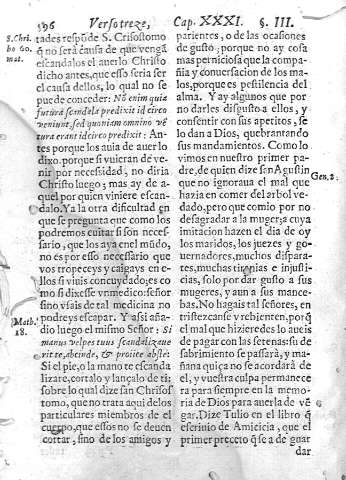 196 Versotreze, Cap. XXXI. §. III.
S. Chri
ho. 60.
mat.
tades respõde S. Crisostomo
q̃ no será causa de que vengã
escandalos el auerlo Christo
dicho antes, que esso seria ser
el causa dellos, lo qual no se
puede conceder: Nõ enim quia
futura scandela predixit id circo
veniunt, sed quoniam omnino vẽ
tura erant id circo predixit: An-
tes porque los auia de auer lo
dixo. porque si vuieran de ve-
nir por necessidad, no diria
Christo luego; mas ay de a-
quel por quien viniere escan-
dalo. Ya la otra dificultad en
que se pregunta que como los
podremos euitar si son neces-
sario, que los aya en el mũdo,
no es por esso necessario que
vos tropeceys y caigays en e-
llos si viuis concuydado; es co
mo si dixesse vn medico: señor
sino vsais de tal medicina no
podreys escapar. Y assi aña-
dio luego el mismo Señor: Si
Math.
18.
manus vel pes tuus scandalizaue
rit te, abcinde, & proiice abs te:
Si el pie, o la mano te escanda
lizare, cortalo y lançalo de ti:
sobre lo qual dize san Chrisos
tomo, que no trata aqui de los
particulares miembros de el
cuerpo, que essos no se deuen
cortar, sino de los amigos y
parientes, o de las ocasiones
de gusto; porque no ay cosa
mas perniciosa que la compa-
ñia y conuersacion de los ma-
los, porque es pestilencia del
alma. Y ay algunos que por
no darles disgusto a ellos, y
consentir con sus apetitos, se
lo dan a Dios, quebrantando
sus mandamientos. Como lo
vimos en nuestro primer pa-
dre, de quien dize san Agustin
Gen. 2.
que no ignoraua el mal que
hazia en comer del arbol ve-
dado, pero que comio por no
desagradar a la muger; a cuya
imitacion hazen el dia de oy
los maridos, los juezes y go-
uernadores, muchos dispara-
tes, muchas tiranias e injusti-
cias, solo por dar gusto a sus
mugeres, y aun a sus mance-
bas. No hagais tal señores, en
tristezcanse y rebienten, porq̃
el mal que hizieredes lo aueis
de pagar con las setenas: su de
sabrimiento se passarà, y ma-
ñana quiça no se acordarà de
el, y vuestra culpa permanece
ra para siempre en la memo-
ria de Dios para auerla de vẽ
gar. Dize Tulio en el libro q̃
escriuio de Amicicia, que el
primer precepto q̃ se a de guar
dar